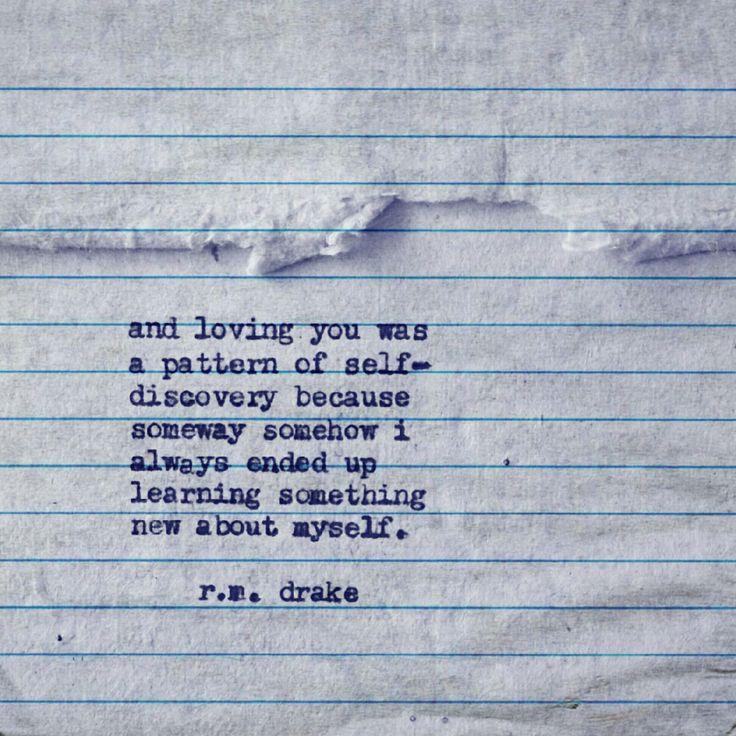 and loving you was
a pattern of self-
discovery because
someway somehow i
always ended up
learning something
new about myself.
r.m. drake